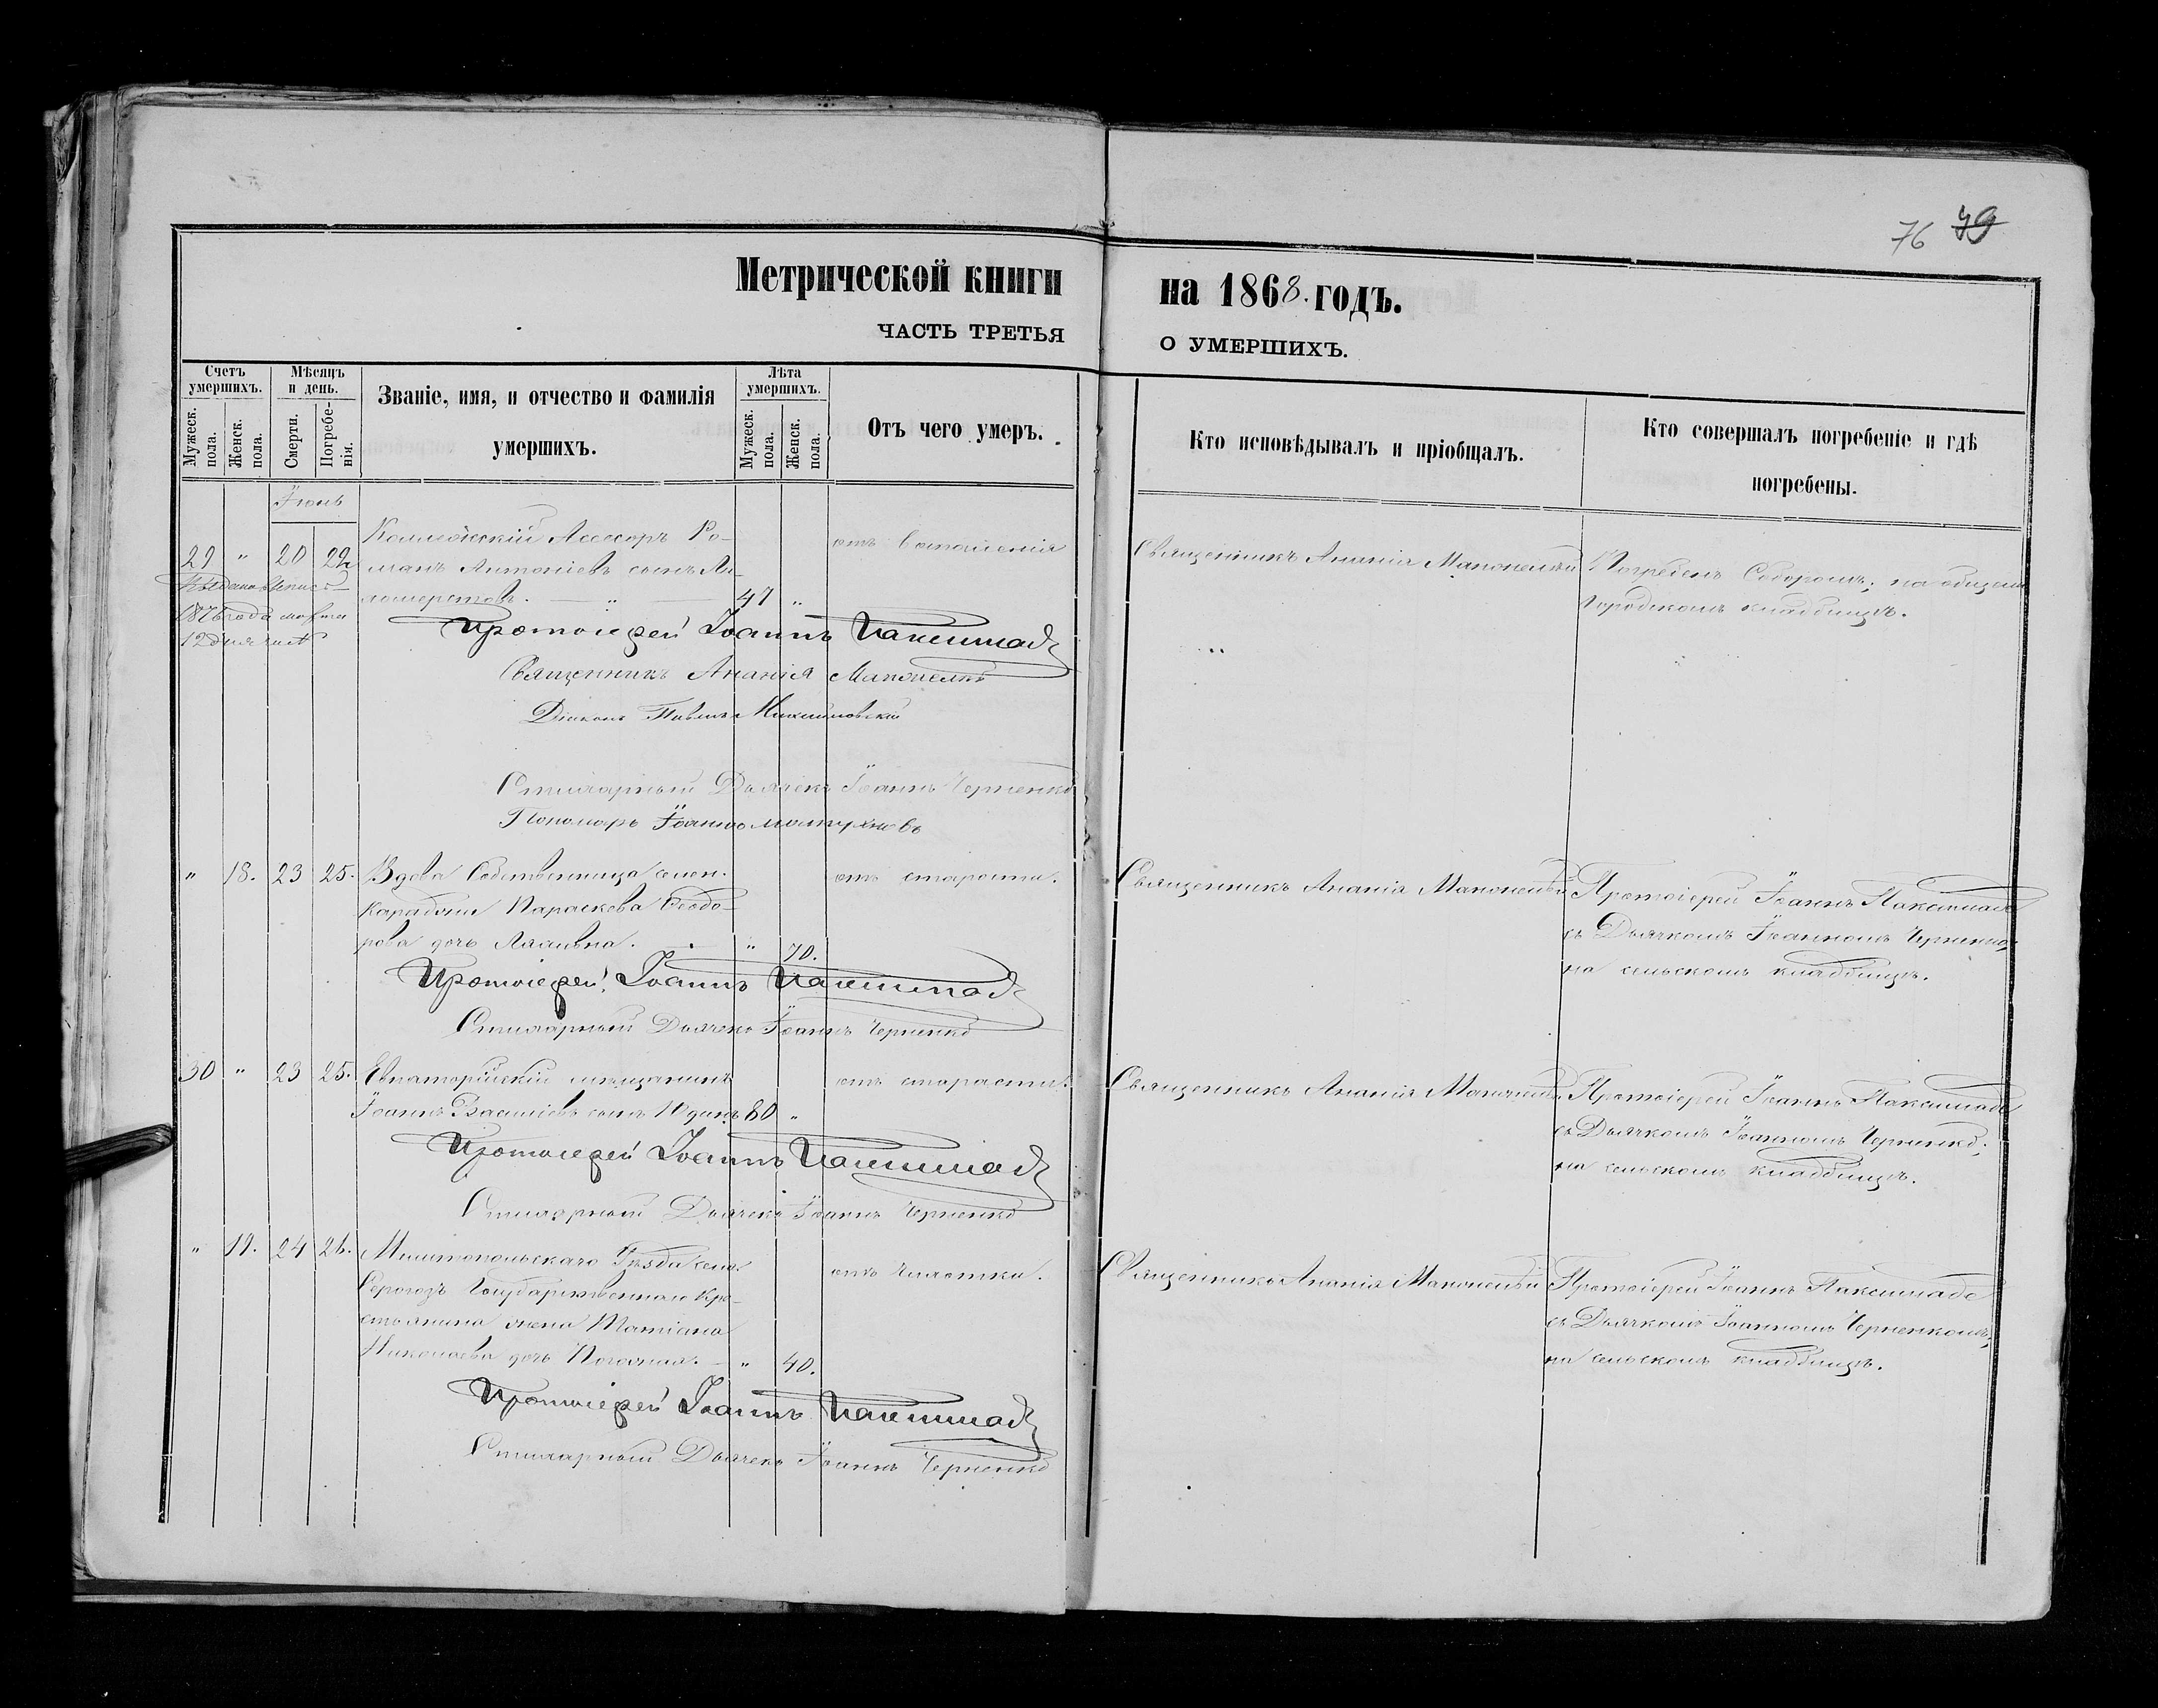 76 79
Метрической книги на 1868. годъ.
ЧАСТЬ ТРЕТЬЯ О УМЕРШИХЪ.
Счетъ умершихъ.
Мужеск. пола.
Женск. пола.
Мѣсяцъ и день.
Смерти.
Погребенія.
Званіе, имя, и отчество и фамилія
умершихъ.
Лѣта умершихъ.
Мужеск. пола.
Женск. пола.
Отъ чего умеръ.
Кто исповѣдывалъ и пріобщалъ.
Кто совершалъ погребеніе и гдѣ
погребены.
Іюнь
29 " 20 22
Коллежскій Асессоръ Ро-
манъ Антоніевъ сынъ
47 "
отъ воспаленія
Священникъ Ананія
Погребенъ Соборомъ; на общемъ
Городскомъ кладбищѣ.
1876 года марта
12 дня
Протоіерей Іоаннъ Паксимадз
Священникъ Ананія
Діаконъ Павелъ
Стихарный Дьячекъ Іоаннъ Черненко
Пономарь Іоаннъ
" 18. 23 25.
Вдова Собственница селен.
Карабани Параскева Ѳеодо-
рова дочь
" 70.
отъ старости.
Священникъ Ананія
Протоіерей Іоаннъ Паксимадз
съ Дьячкомъ Іоанномъ Черненко;
на сельскомъ кладбищѣ.
Протоіерей Іоаннъ Паксимадз
Стихарный Дьячекъ Іоаннъ Черненко
30 " 23 25.
Евпаторійскій мѣщанинъ
Іоаннъ Васильевъ сынъ Юдинъ 80 "
отъ старости.
Священникъ Ананія
Протоіерей Іоаннъ Паксимадз
съ Дьячкомъ Іоанномъ Черненко;
на сельскомъ кладбищѣ.
Протоіерей Іоаннъ Паксимадз
Стихарный Дьячекъ Іоаннъ Черненко
" 19. 24 26.
Мелитопольскаго Уѣзда села
Серогозъ Государственнаго Кре-
стьянина жена Татіана
Николаева дочь
" 40.
отъ чахотки.
Священникъ Ананія
Протоіерей Іоаннъ Паксимадз
съ Дьячкомъ Іоанномъ Черненкомъ;
на сельскомъ кладбищѣ.
Протоіерей Іоаннъ Паксимадз
Стихарный Дьячекъ Іоаннъ Черненко